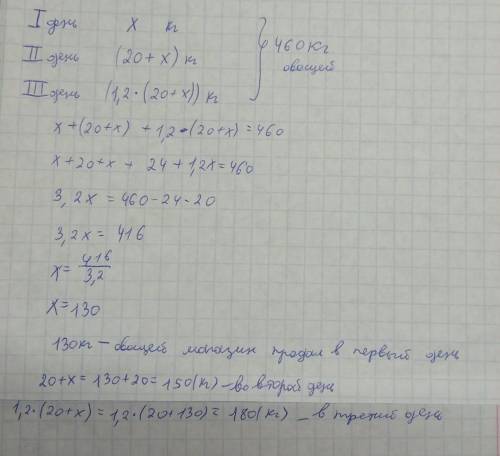 I день x кг
II день (20+x) кг
III день (1,2·(20+x)) кг
460 кг
овощей
x+(20+x) +1,2·(20+x)=460
x+20+x + 24+1,2x=460
3,2x = 460-24-20
3,2x = 416
x= 416/3,2
x=130
130кг – овощей магазин продал в первый день
20+x=130+20=150(кг) – во второй день
1,2·(20+x)=1,2·(20+130)=180(кг) – в третий день